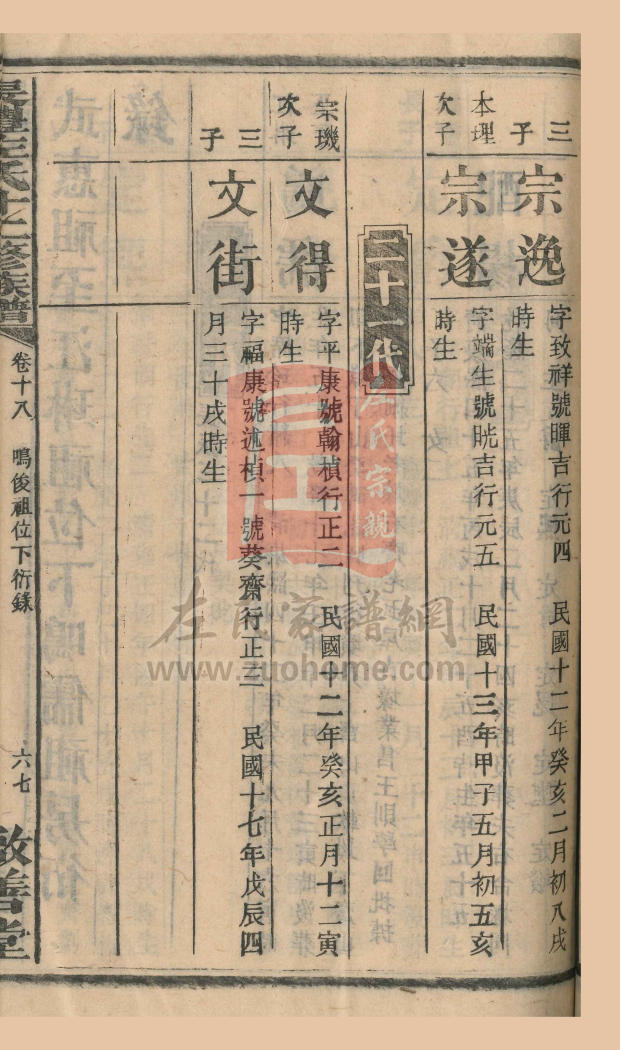 三子
宗逸
字致祥號暉吉行元四 民國十二年癸亥二月初八戌
時生
本理次子
宗遂
字端生號晄吉行元五 民國十三年甲子五月初五亥
時生
二十一代
宗璣次子
文得
字平康號翰楨行正二 民國十二年癸亥正月十二寅
時生
三子
文街
字福康號述楨一號葵齋行正三 民國十七年戊辰四
月三十戌時生
左氏十二修族譜
卷十八 鳴俊祖位下衍錄
六七
啟善堂
左氏宗親
左氏家譜網
www.zuohome.com